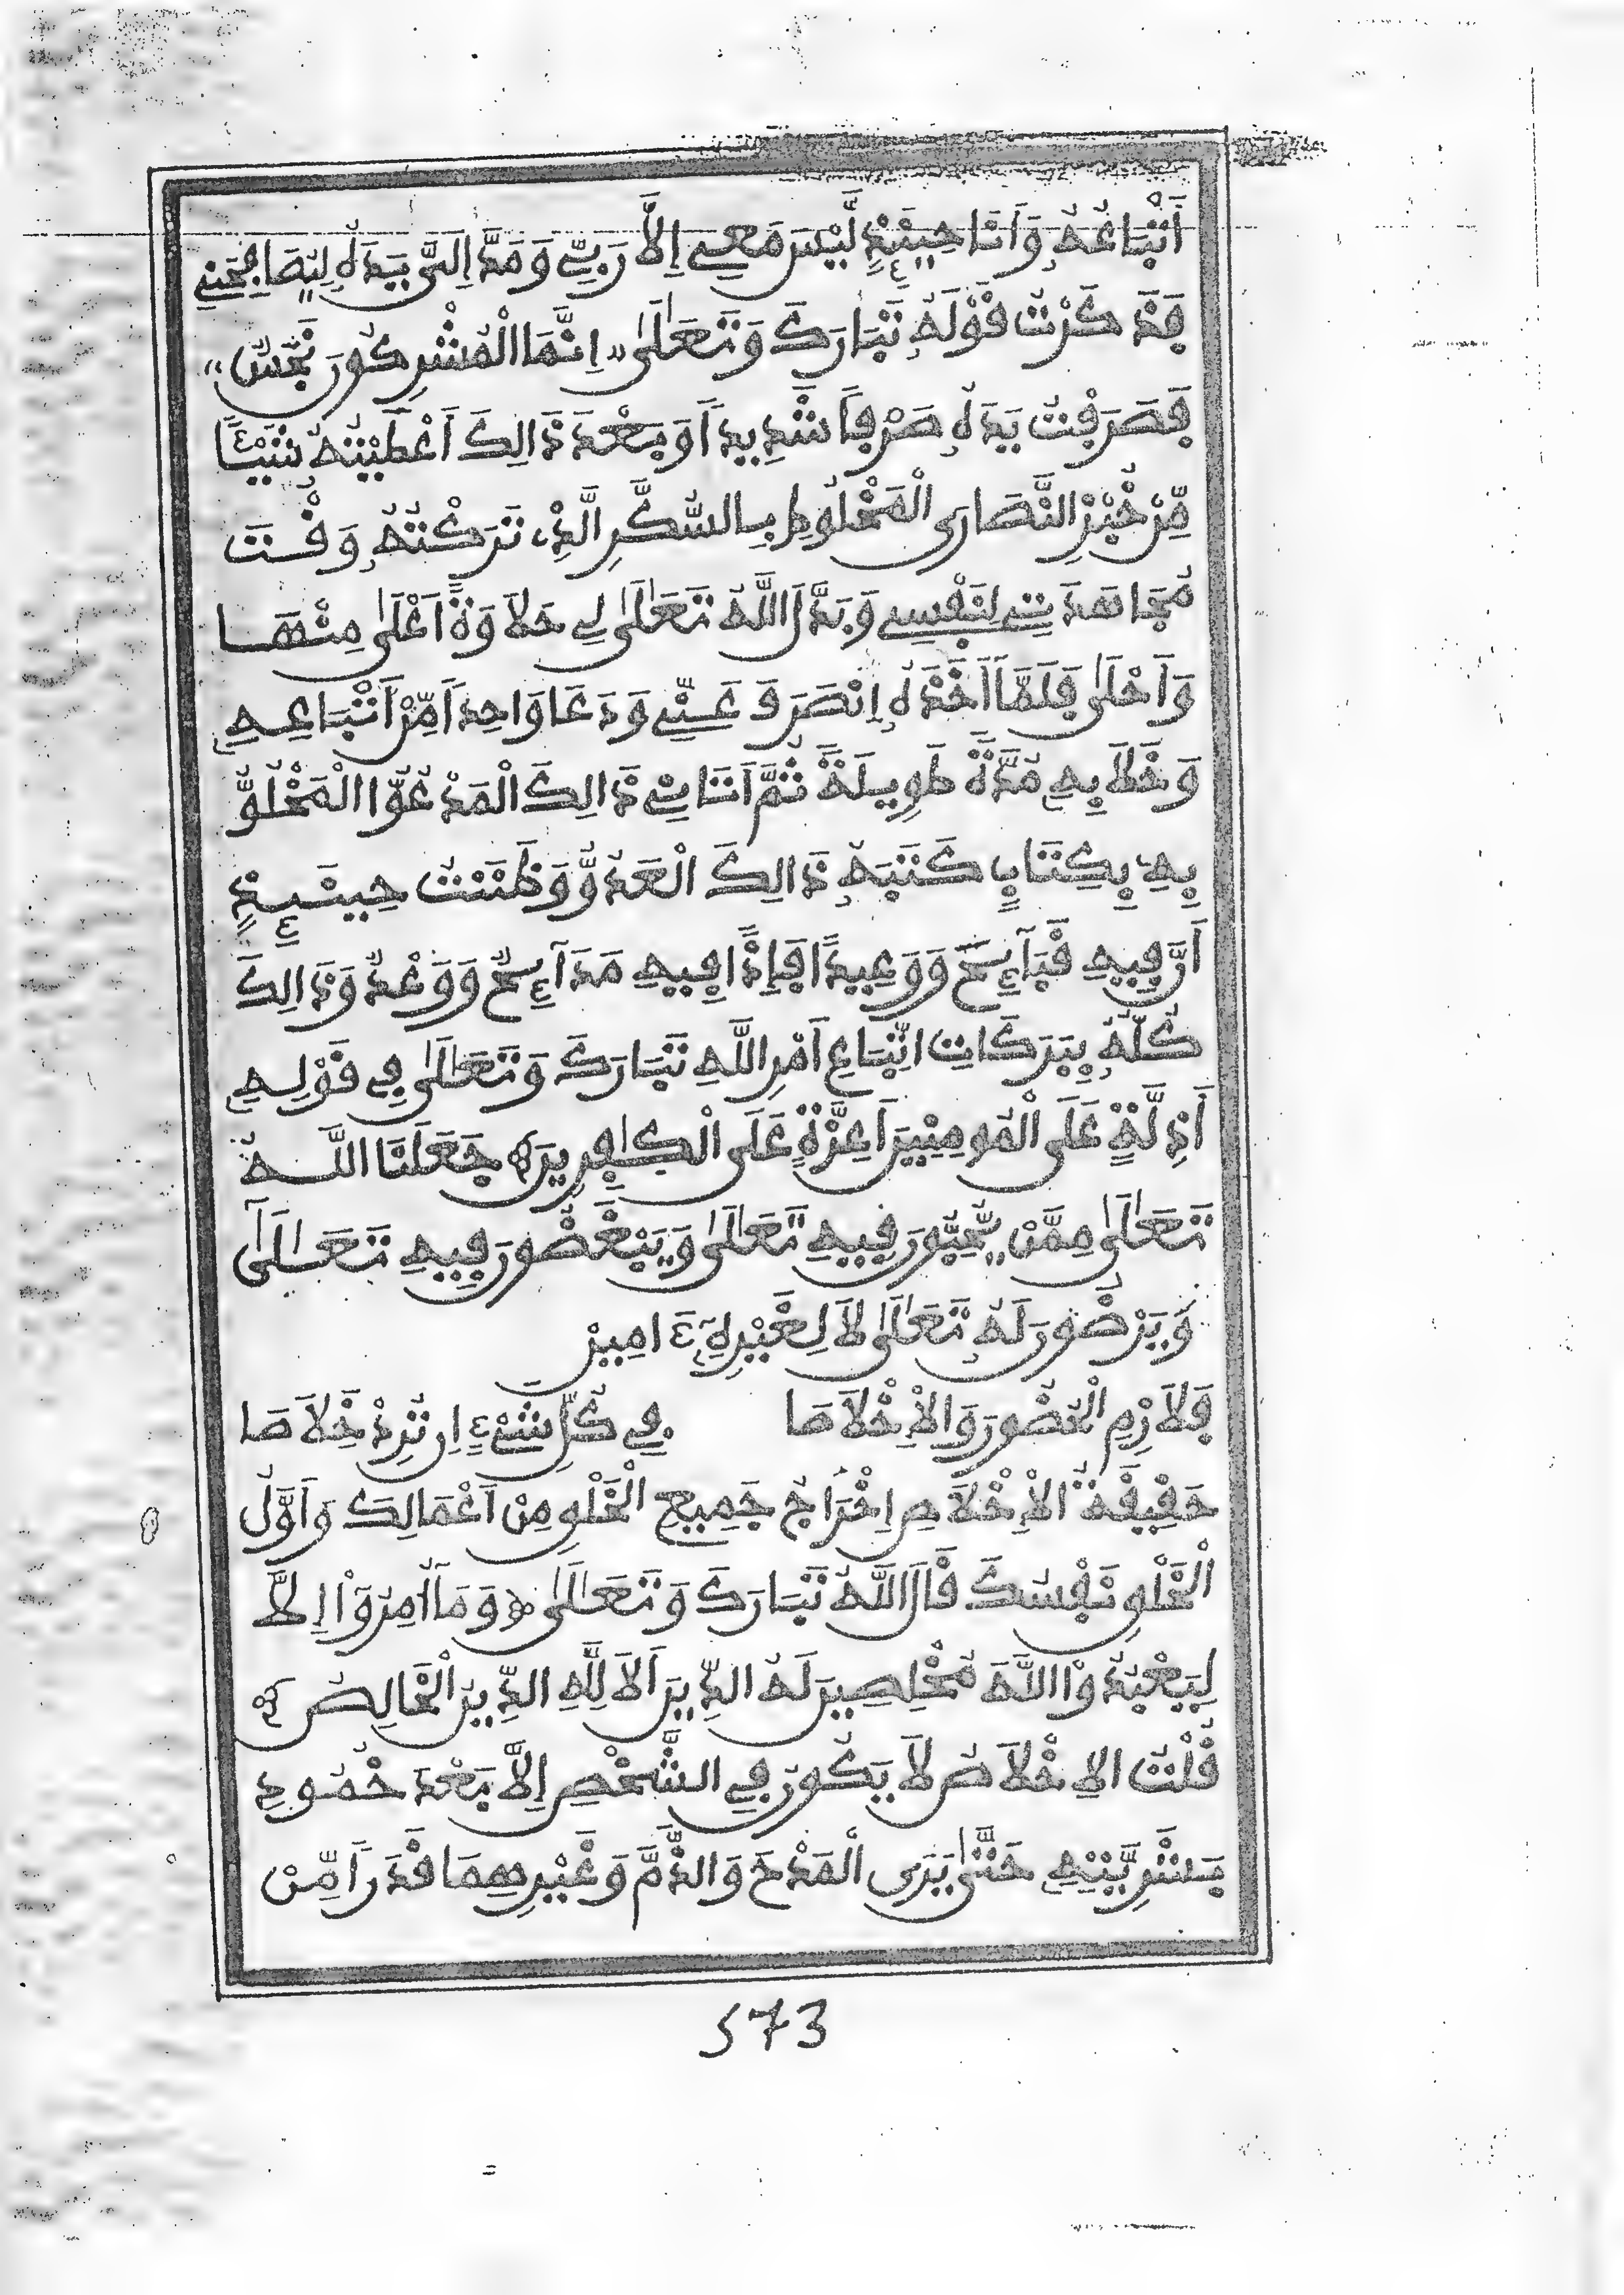 أَتْبَاعُهُ وَأَنَا حِينَئِذٍ لَّيْسَ مَعِي إِلاَّ رَبِّي وَمَدَّ إِلَيَّ يَدَهُ لِيُصَافِحَنِي
فَذَكَرْتُ قَوْلَهُ تَبَارَكَ وَتَعَالَىٰ «إِنَّمَا الْمُشْرِكُونَ نَجَسٌ»
فَصَرَفْتُ يَدَهُ صَرْفاً شَدِيداً وَبَعْدَ ذَالِكَ أَعْطَيْتُهُ شَيْئاً
مِّنْ خُبْزِ النَّصَارَى الْمَخْلُوطِ بِالسُّكَّرِ الَّذِي تَرَكْتُهُ وَقْتَ
مُجَاهَدَتِي لِنَفْسِي وَبَدَّلَ اللَّهُ تَعَالَىٰ لِي حَلاَوَةً أَعْلَىٰ مِنْهَا
وَأَحْلَىٰ فَلَمَّا أَخَذَهُ إِنْصَرَفَ عَنِّي وَدَعَا وَاحِداً مِّنْ أَتْبَاعِهِ
وَخَلَا بِهِ مُدَّةً طَوِيلَةً ثُمَّ أَتَانِي ذَالِكَ الْمَدْعُوُّ الْمَخْلُوُّ
بِهِ بِكِتَابٍ كَتَبَهُ ذَالِكَ الْعَدُوُّ وَظَنَنْتُ حِينَئِذٍ
أَنَّ فِيهِ قَبَآئِحَ وَوَعِيداً فَإِذَا فِيهِ مَدَآئِحُ وَوَعْدٌ وَذَالِكَ
كُلُّهُ بِبَرَكَاتِ اتِّبَاعِ أَمْرِ اللَّهِ تَبَارَكَ وَتَعَالَىٰ فِي قَوْلِهِ
أَذِلَّةٍ عَلَى الْمُومِنِينَ أَعِزَّةٍ عَلَى الْكَٰافِرِينَ﴾ جَعَلَنَا اللَّهُ
تَعَالَىٰ مِمَّنْ يُّحِبُّونَ فِيهِ تَعَالَىٰ وَيَبْغَضُونَ فِيهِ تَعَالَىٰ
وَيَرْضَوْنَ لَهُ تَعَالَىٰ لاَ لِغَيْرِهِ ءَامِينْ
فَلاَزِمِ الْحُضُورَ وَالإِخْلاَصَا فِي كُلِّ شَيْءٍ إِن تُرِدْ خَلاَصَا
حَقِيقَةُ الإِخْلاَصِ إِخْرَاجُ جَمِيعِ الْخَلْقِ مِنْ أَعْمَالِكَ وَأَوَّلُ
الْخَلْقِ نَفْسُكَ قَالَ اللَّهُ تَبَارَكَ وَتَعَالَىٰ ﴿وَمَا أُمِرُوا إِلاَّ
لِيَعْبُدُوا اللَّهَ مُخْلِصِينَ لَهُ الدِّينَ أَلاَ لِلَّهِ الدِّينُ الْخَالِصُ﴾
قُلْتُ الإِخْلاَصُ لاَ يَكُونُ فِي الشَّخْصِ إِلاَّ بَعْدَ خُمُودِ
بَشَرِيَّتِهِ حَتَّىٰ يَرَى الْمَدْحَ وَالذَّمَّ وَغَيْرِهِمَا قَدَراً مِّنْ
573